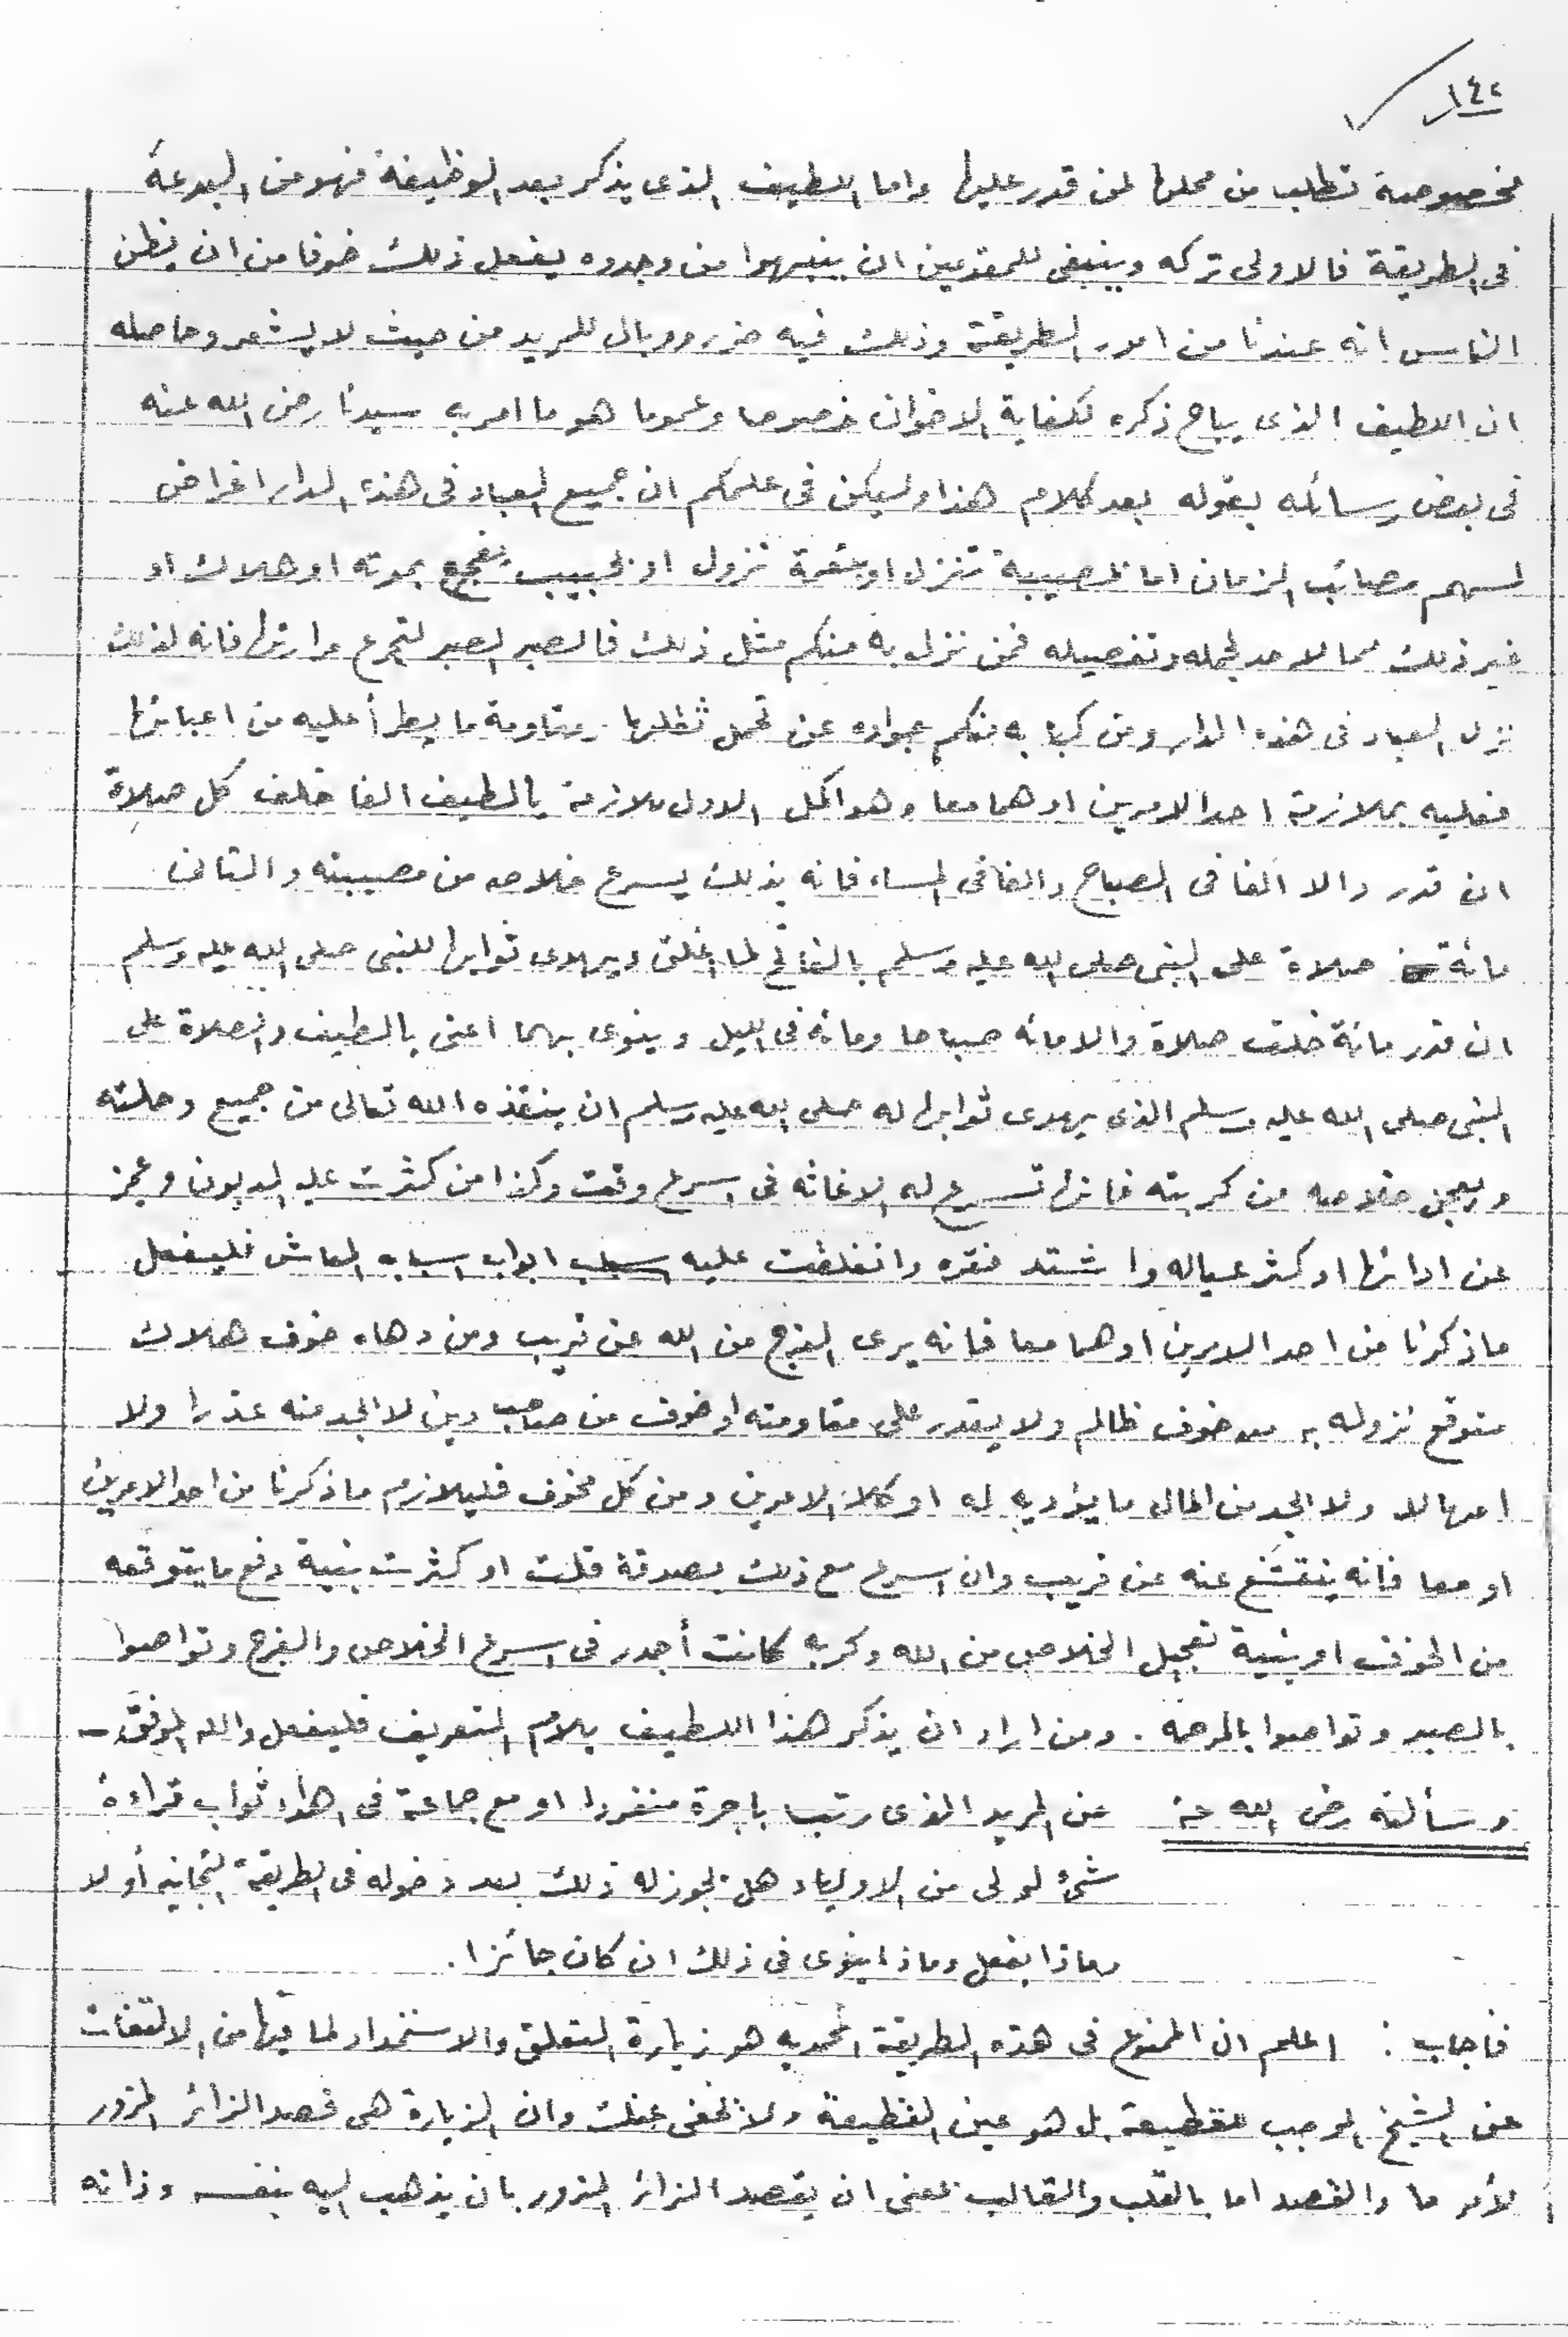 ١٤٢
مخصوصة تطلب من محلها لمن قدر عليها واما اللطيف الذى يذكر بعد الوظيفة فهو من البدعة
فى الطريقة فالاولى تركه وينبغى للمقدمين ان ينبهوا من وجدوه يفعل ذلك خوفا من ان يظن
الناس انه عندنا من امور الطريقة وذلك فيه ضرر ووبال للمريد من حيث لا يشعر وحاصله
ان اللطيف الذى يباح ذكره لكفاية الاخوان خصوصا وعموما هو ما امر به سيدنا رضى الله عنه
فى بعض رسائله بقوله بعد كلام هذا وليكن فى علمكم ان جميع العباد فى هذه الدار اغراض
لسهم مصائب الزمان اما بمصيبة تنزل او بنقمة تزول او بحبيب يفجع بموته او هلاك او
غير ذلك مما لا حد لجمله وتفصيله فمن نزل به منكم مثل ذلك فالصبر الصبر لتجرع مرارتها فانه لذلك
نزل العباد فى هذه الدار ومن كبا به منكم جواده عن تحمل ثقلها ومقاومة ما يطرأ عليه من اعبائها
فعليه بملازمة احد الامرين او هما معا وهو اكمل الاول ملازمة يا لطيف الفا خلف كل صلاة
ان قدر والا الفا فى الصباح والفا فى المساء فانه بذلك يسرع خلاصه من مصيبته والثانى
مائة صلاة على النبى صلى الله عليه وسلم بالفاتح لما اغلق ويهدى ثوابها للنبى صلى الله عليه وسلم
ان قدر مائة خلف صلاة والا مائه صباحا ومائة فى الليل وينوى بهما اعنى يا لطيف والصلاة على
النبى صلى الله عليه وسلم الذى يهدى ثوابها له صلى الله عليه وسلم ان ينقذه الله تعالى من جميع وحلته
ويعجل خلاصه من كربته فانها تسرع له الاغاثه فى اسرع وقت وكذا من كثرت عليه الديون وعجز
عن ادائها او كثر عياله واشتد فقره وانغلقت عليه اسباب ابواب اسباب المعاش فليفعل
ما ذكرنا من احد الامرين او هما معا فانه يرى الفرج من الله عن قريب ومن دهاه خوف هلاك
متوقع نزوله به من خوف ظالم ولا يقدر على مقاومته او خوف من صاحب دين لا يجد منه عذرا ولا
امهالا ولا يجد من المال ما يؤديه له او كلا الامرين ومن كل مخوف فليلازم ما ذكرنا من احد الامرين
او معا فانه ينقشع عنه عن قريب وان اسرع مع ذلك بصدقة قلت او كثرت بنية دفع ما يتوقعه
من الخوف او بنية تعجيل الخلاص من الله وكربه كانت أجدر فى اسرع الخلاص والفرج وتواصوا
بالصبر وتواصوا بالمرحمه . ومن اراد ان يذكر هذا اللطيف بلام التعريف فليفعل والله الموفق –
وسألته رضى الله عنه عن المريد الذى رتب باجرة منفردا او مع جماعة فى اهداء ثواب قراءة
شئ لولى من الاولياء هل يجوز له ذلك بعد دخوله فى الطريقة التجانيه أو لا
وماذا يفعل وماذا ينوى فى ذلك ان كان جائزا .
فاجاب : اعلم ان الممنوع فى هذه الطريقة المحمديه هو زيارة التعلق والاستمداد لما فيها من الالتفات
عن الشيخ الموجب للقطيعة بل هو عين القطيعة ولا يخفى عنك وان الزيارة هى قصد الزائر المزور
لأمر ما والقصد اما بالقلب والقالب بمعنى ان يقصد الزائر المزور بان يذهب اليه بنفسه وذاته